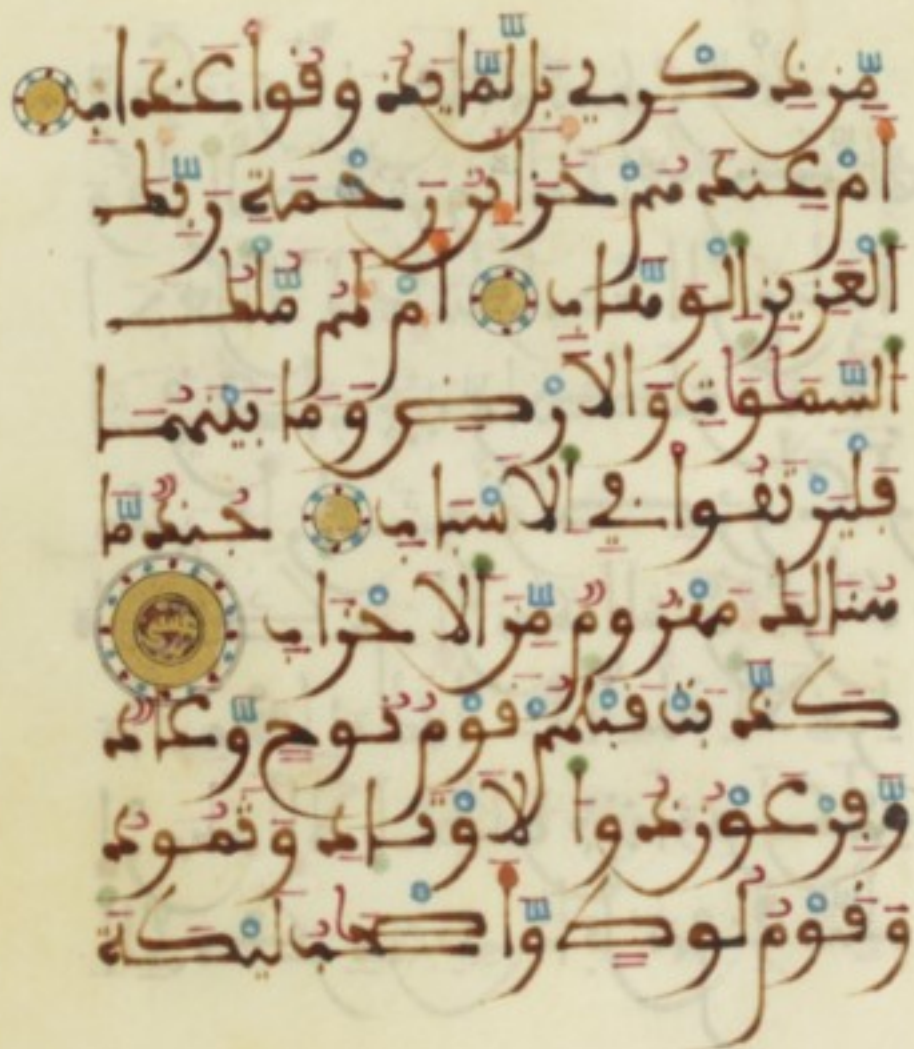 مِّن ذِكْرِي بَل لَّمَّا يَذُوقُوا عَذَابِ
أَمْ عِندَهُمْ خَزَائِنُ رَحْمَةِ رَبِّكَ
الْعَزِيزِ الْوَهَّابِ أَمْ لَهُم مُّلْكُ
السَّمَٰوَٰتِ وَالْأَرْضِ وَمَا بَيْنَهُمَا
فَلْيَرْتَقُوا فِي الْأَسْبَابِ جُندٌ مَّا
هُنَالِكَ مَهْزُومٌ مِّنَ الْأَحْزَابِ
كَذَّبَتْ قَبْلَهُمْ قَوْمُ نُوحٍ وَعَادٌ
وَفِرْعَوْنُ ذُو الْأَوْتَادِ وَثَمُودُ
وَقَوْمُ لُوطٍ وَأَصْحَٰبُ لَيْكَةَ